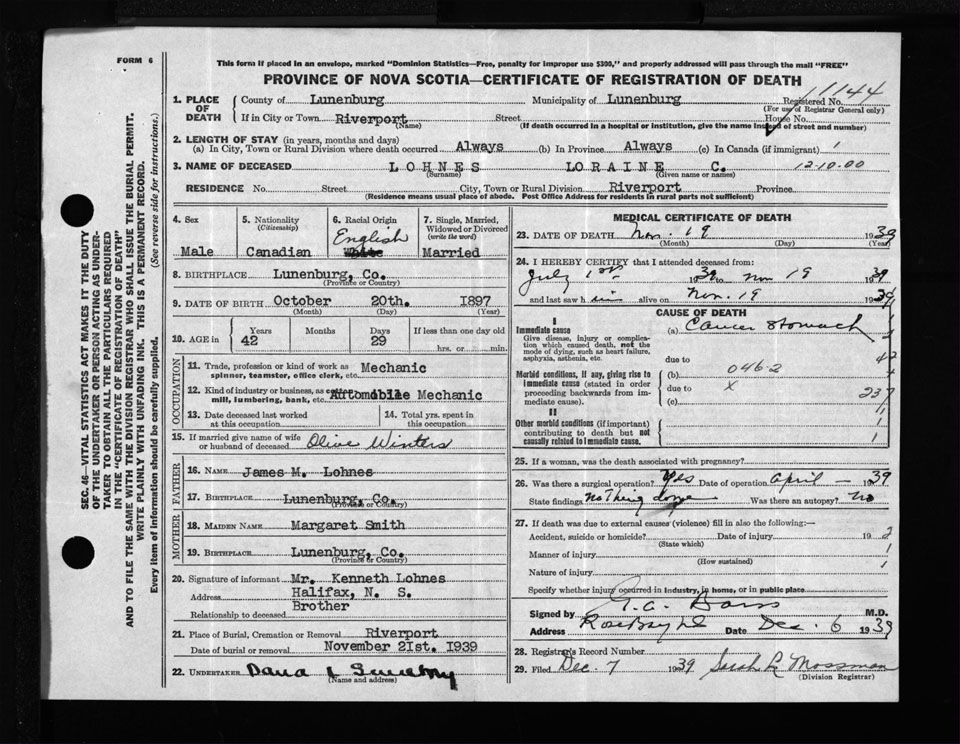 FORM 6
This form if placed in an envelope, marked "Dominion Statistics—Free, penalty for improper use $300," and properly addressed will pass through the mail "FREE"
PROVINCE OF NOVA SCOTIA—CERTIFICATE OF REGISTRATION OF DEATH
SEC. 46—VITAL STATISTICS ACT MAKES IT THE DUTY
OF THE UNDERTAKER OR PERSON ACTING AS UNDER-
TAKER TO OBTAIN ALL THE PARTICULARS REQUIRED
IN THE "CERTIFICATE OF REGISTRATION OF DEATH"
AND TO FILE THE SAME WITH THE DIVISION REGISTRAR WHO SHALL ISSUE THE BURIAL PERMIT.
WRITE PLAINLY WITH UNFADING INK. THIS IS A PERMANENT RECORD.
Every item of information should be carefully supplied. (See reverse side for instructions.)
1. PLACE OF DEATH County of Lunenburg Municipality of Lunenburg Registered No. 1144
(For use of Registrar General only)
If in City or Town Riverport Street House No.
(Name) (If death occurred in a hospital or institution, give the name instead of street and number)
2. LENGTH OF STAY (in years, months and days)
(a) In City, Town or Rural Division where death occurred Always (b) In Province Always (c) In Canada (if immigrant) 1
3. NAME OF DECEASED LOHNES LORAINE C. 12-10.00
(Surname) (Given name or names)
RESIDENCE No. Street City, Town or Rural Division Riverport Province
(Residence means usual place of abode. Post Office Address for residents in rural parts not sufficient)
4. Sex 5. Nationality 6. Racial Origin 7. Single, Married,
(Citizenship) English Widowed or Divorced
(write the word)
Male Canadian White Married
8. BIRTHPLACE Lunenburg, Co.
(Province or Country)
9. DATE OF BIRTH October 20th. 1897
(Month) (Day) (Year)
10. AGE in Years Months Days If less than one day old
42 29 hrs. or min.
OCCUPATION
11. Trade, profession or kind of work as Mechanic
spinner, teamster, office clerk, etc.
12. Kind of industry or business, as cotton Automobile Mechanic
mill, lumbering, bank, etc.
13. Date deceased last worked 14. Total yrs. spent in
at this occupation this occupation
15. If married give name of wife Olive Winters
or husband of deceased
FATHER
16. NAME James M. Lohnes
17. BIRTHPLACE Lunenburg, Co.
(Province or Country)
MOTHER
18. MAIDEN NAME Margaret Smith
19. BIRTHPLACE Lunenburg, Co.
(Province or Country)
20. Signature of informant Mr. Kenneth Lohnes
Address Halifax, N. S.
Relationship to deceased Brother
21. Place of Burial, Cremation or Removal Riverport
Date of burial or removal November 21st. 1939
22. UNDERTAKER Dana L
(Name and address)
MEDICAL CERTIFICATE OF DEATH
23. DATE OF DEATH Nov. 19 1939
(Month) (Day) (Year)
24. I HEREBY CERTIFY that I attended deceased from:
July 1st 1939 to Nov 19 1939
and last saw him alive on Nov. 19 1939
CAUSE OF DEATH
I
Immediate cause (a) Cancer Stomach
Give disease, injury or complica-
tion which caused death, not the
mode of dying, such as heart failure,
asphyxia, asthenia, etc. due to
Morbid conditions, if any, giving rise to (b) 046.2
immediate cause (stated in order due to X
proceeding backwards from im- 237
mediate cause). (c)
II
Other morbid conditions (if important)
contributing to death but not
causally related to immediate cause.
25. If a woman, was the death associated with pregnancy?
26. Was there a surgical operation? Yes Date of operation April - 1939
State findings nothing done Was there an autopsy? no
27. If death was due to external causes (violence) fill in also the following:—
Accident, suicide or homicide? Date of injury 19 2
(State which)
Manner of injury 1
(How sustained)
Nature of injury 1
Specify whether injury occurred in industry, in home, or in public place
Signed by M.D.
Address Rose Bay Date Dec. 6 1939
28. Registrar's Record Number
29. Filed Dec. 7 1939 Sarah L Mossman
(Division Registrar)